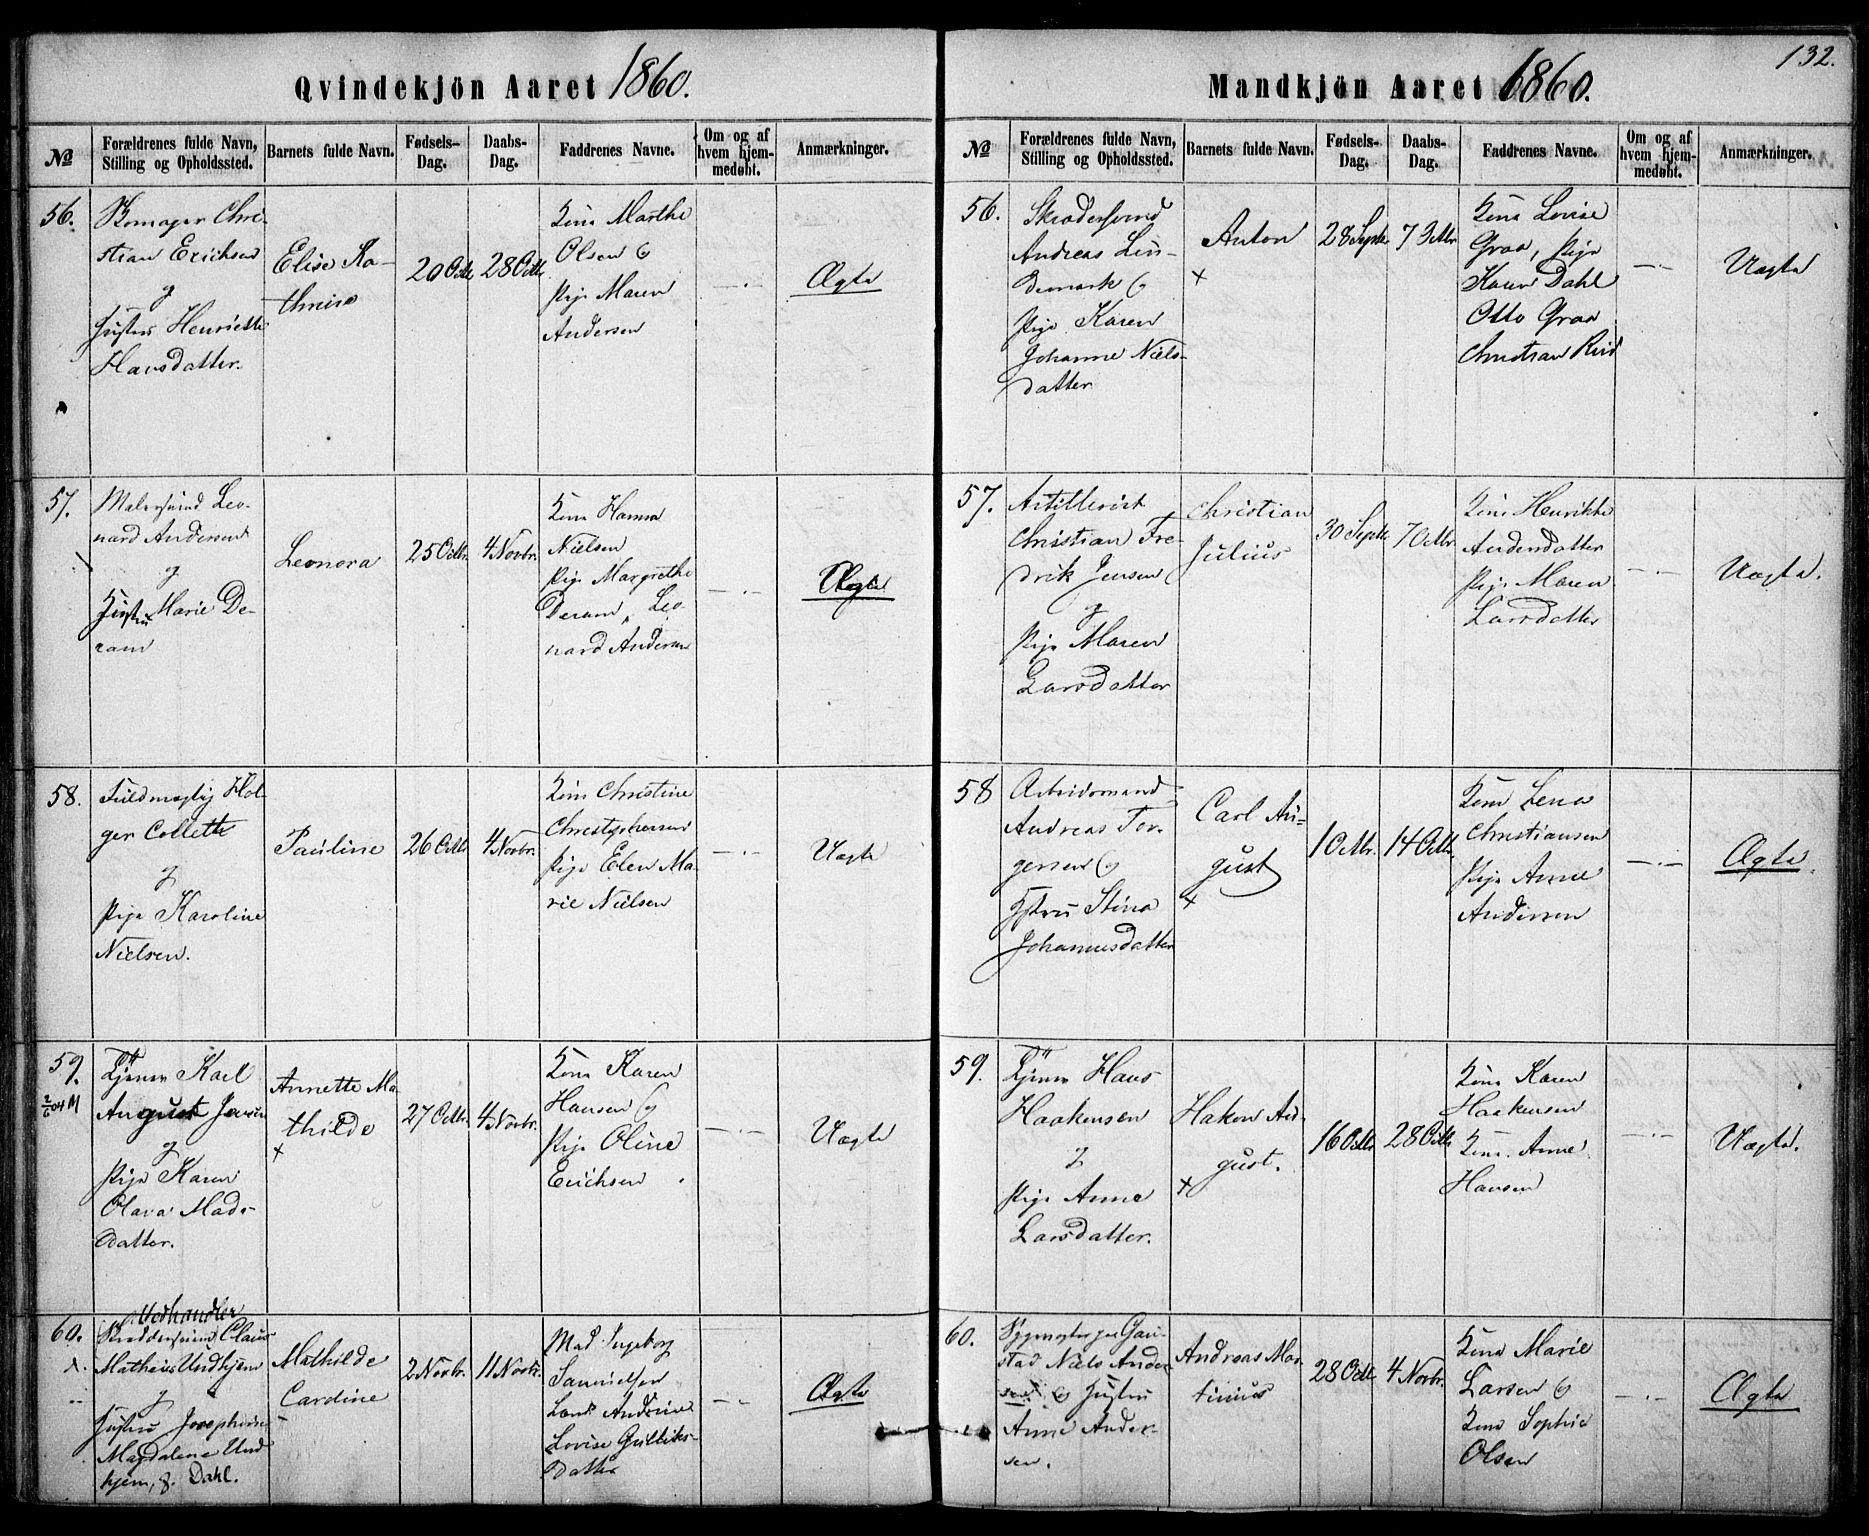 132.
Qvindekjön Aaret 1860.
№
Forældrenes fulde Navn,
Stilling og Opholdssted.
Barnets fulde Navn.
Fødsels-
Dag.
Daabs-
Dag.
Faddrenes Navne.
Om og af
hvem hjem-
medøbt.
Anmærkninger.
56.
Chri-
stian Erichsen
og
Hustru Henriette
Hansdatter.
Elise Ka-
thrine
20 Octbr
28 Octbr
Kone Marthe
Olsen og
Pige Maren
Andersen
— . —
Ægte
57.
Malersvend Leo-
nard Andersen
og
Hustru Marie De-
ram
Leonora
25 Octbr.
4 Novbr.
Kone Hanna
Nielsen
Pige Margrethe
Deram, Leo-
nard Andersen
— . —
Ægte
58.
Fuldmægtig Hol-
ger Collett
og
Pige Karoline
Nielsen.
Pauline
26 Octbr.
4 Novbr.
Kone Christine
Christophersen
Pige Elen Ma-
rie Nielsen
— . —
Uægte
59.
Tjener Karl
August Jensen
og
Pige Karen
Olava Mads-
datter.
Annette Ma-
thilde
+
27 Octbr.
4 Novbr.
Kone Karen
Hansen og
Pige Oline
Erichsen
— . —
Uægte
60.
Vedhandler
Claus
Mathias Undhjem
og
Hustru Josephine
Magdalene Und-
hjem, f. Dahl.
Mathilde
Cardine
2 Novbr.
11 Novbr.
Mad. Ingeborg
Samuelsen
Andrine
Lovise Gulliks-
datter
— . —
Ægte
Mandkjön Aaret 1860.
№
Forældrenes fulde Navn,
Stilling og Opholdssted.
Barnets fulde Navn.
Fødsels-
Dag.
Daabs-
Dag.
Faddrenes Navne.
Om og af
hvem hjem-
medøbt.
Anmærkninger.
56.
Skrædersvend
Andreas Lin-
demark og
Pige Karen
Johanne Niels-
datter
Anton
+
28 Septbr
7 Octbr
Kone Lovise
Graa, Pige
Karen Dahl
Otto Graa
Christian
— . —
Uægte
57.
Artillerist
Christian Fre-
drik Jensen
og
Pige Maren
Larsdatter
Christian
Julius
30 Septbr
7 Octbr.
Kone Henrikke
Andersdatter
Pige Maren
Larsdatter
— . —
Uægte.
58
Arbeidsmand
Andreas Tor-
gersen og
Hustru Stina
Johannesdatter
Carl Au-
gust
+
1 Octbr.
14 Octbr.
Kone Lena
Christiansen
Pige Anne
Andersen
— . —
Ægte
59.
Tjener Hans
Haakensen
og
Pige Anne
Larsdatter.
Hakon Au-
gust.
+
16 Octbr
28 Octbr
Kone Karen
Haakensen
Kone Anne
Hansen
— . —
Uægte.
60.
Sygevogter paa Gau-
stad Niels Ander-
sen og Hustru
Anne Ander-
sen.
Andreas Mar-
tinius
28 Octbr
4 Novbr.
Kone Marie
Larsen og
Kone Sophie
Olsen
— . —
Ægte